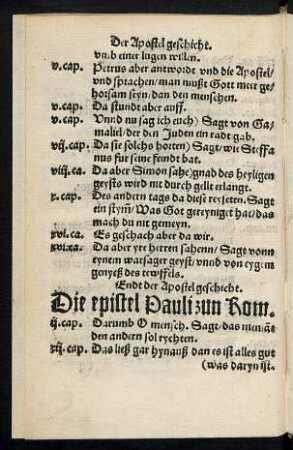 Der Apostel geschicht.
vmb einer lugen willen.
v.cap. Petrus aber antwordt vnd die Apostel/
vnd sprachen/man mußt Gott meer ge-
horsam seyn/dan den menschen.
v.cap. Da stundt aber auff.
v.cap. Vnnd nu sag ich euch) Sagt von Ga-
maliel/der den Juden ein radt gab.
vij.cap. Da sie solchs horten) Sagt/wie Steffa-
nus fur seine feindt bat.
viij.ca. Da aber Simon sahe)gnab des heyligen
geysts wird nit durch gellt erlangt.
x.cap. Des andern tags da diese reyseten. Sagt
ein stym/Was Got gereyniget hat/das
mach du nit gemeyn.
xvi.ca. Es geschach aber da wir.
xvi.ca. Da aber yre herren sahenn/Sagt vonn
eynem warsager geyst/vnnd von eygem
genyeß des tewffels.
Endt der Apostel geschicht.
Die epistel Pauli zun Rom.
ij.cap. Darumb O mensch. Sagt/das niemāt
den andern sol rychten.
xij.cap. Das ließ gar hynauß dan es ist alles gut
(was daryn ist.